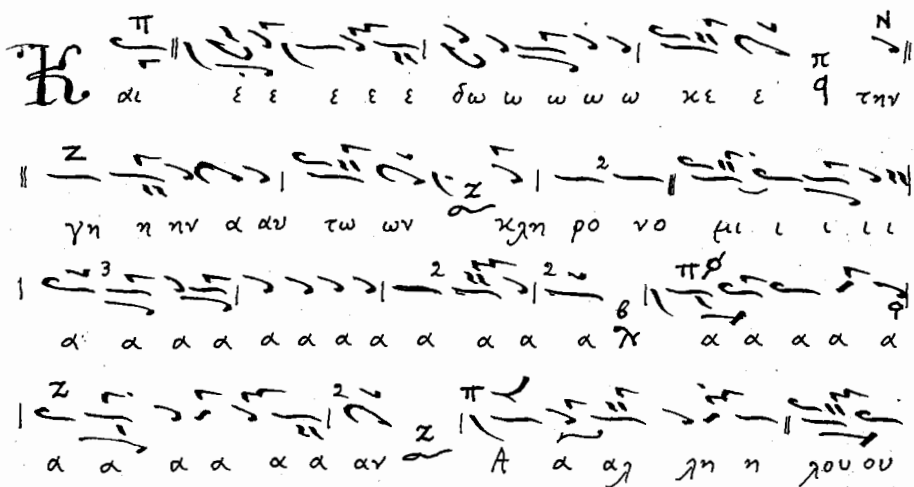 Και ε ε ε ε ε δω ω ω ω ω κε ε την
γη η ην α αυ τω ων κλη ρο νο μι ι ι ι ι
α α α α α α α α α α α α α α α α α
α α α α α α αν Α α αλ λη η λου ου